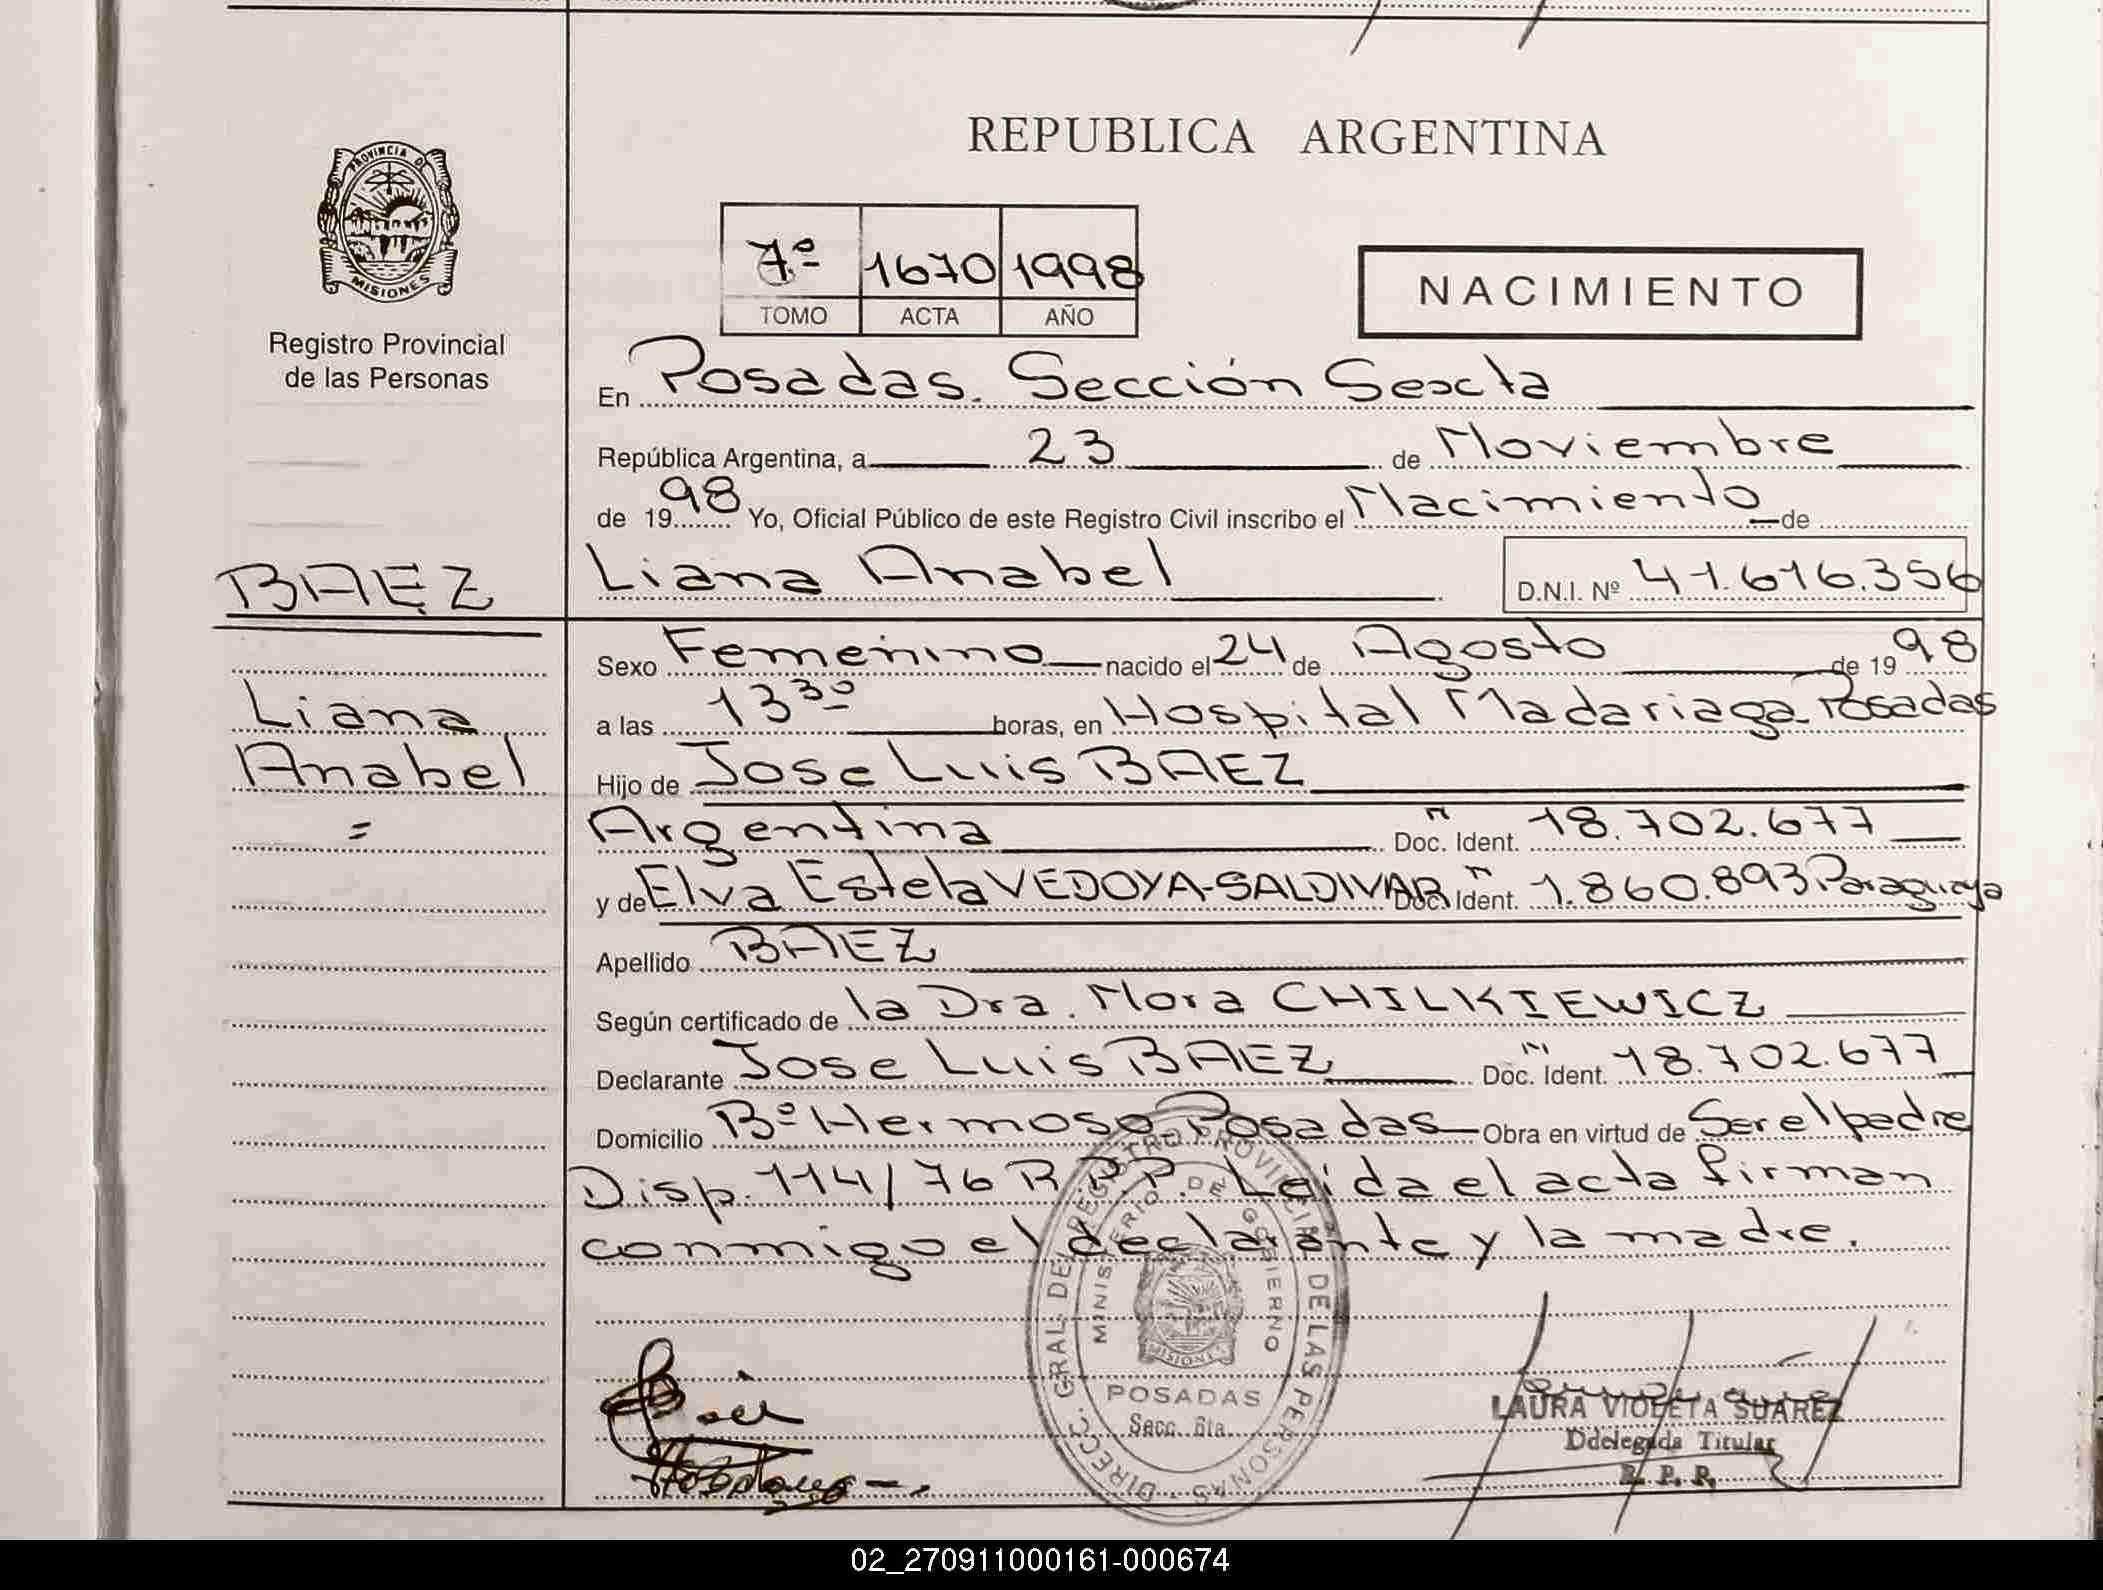 REPUBLICA ARGENTINA
PROVINCIA DE
MISIONES
Registro Provincial
de las Personas
7º 1670 1998
TOMO ACTA AÑO
NACIMIENTO
En Posadas. Sección Sexta
República Argentina, a 23 de Noviembre
de 1998 Yo, Oficial Público de este Registro Civil inscribo el Nacimiento de
BAEZ
Liana Anabel D.N.I. Nº 41.616.356
Sexo Femenino nacido el 24 de Agosto de 1998
Liana
a las 13 30 horas, en Hospital Madariaga Posadas
Anabel
Hijo de Jose Luis BAEZ
=
Argentina Doc. Ident. 18.702.677
y de Elva Estela VEDOYA-SALDIVAR Doc. Ident. 1.860.893 Paraguaya
Apellido BAEZ
Según certificado de la Dra. Nora CHILKIEWICZ
Declarante Jose Luis BAEZ Doc. Ident. 18.702.677
Domicilio Bº Hermoso Posadas Obra en virtud de Ser el padre
Disp. 114/76 R.P.P. Leida el acta firman
conmigo el declarante y la madre.
DIRECC. GRAL DEL REGISTRO PROVINCIAL DE LAS PERSONAS
MINISTERIO DE GOBIERNO
MISIONES
POSADAS
Secc. 6ta.
LAURA VIOLETA SUAREZ
Ddelegada Titular
R. P. P.
02_270911000161-000674